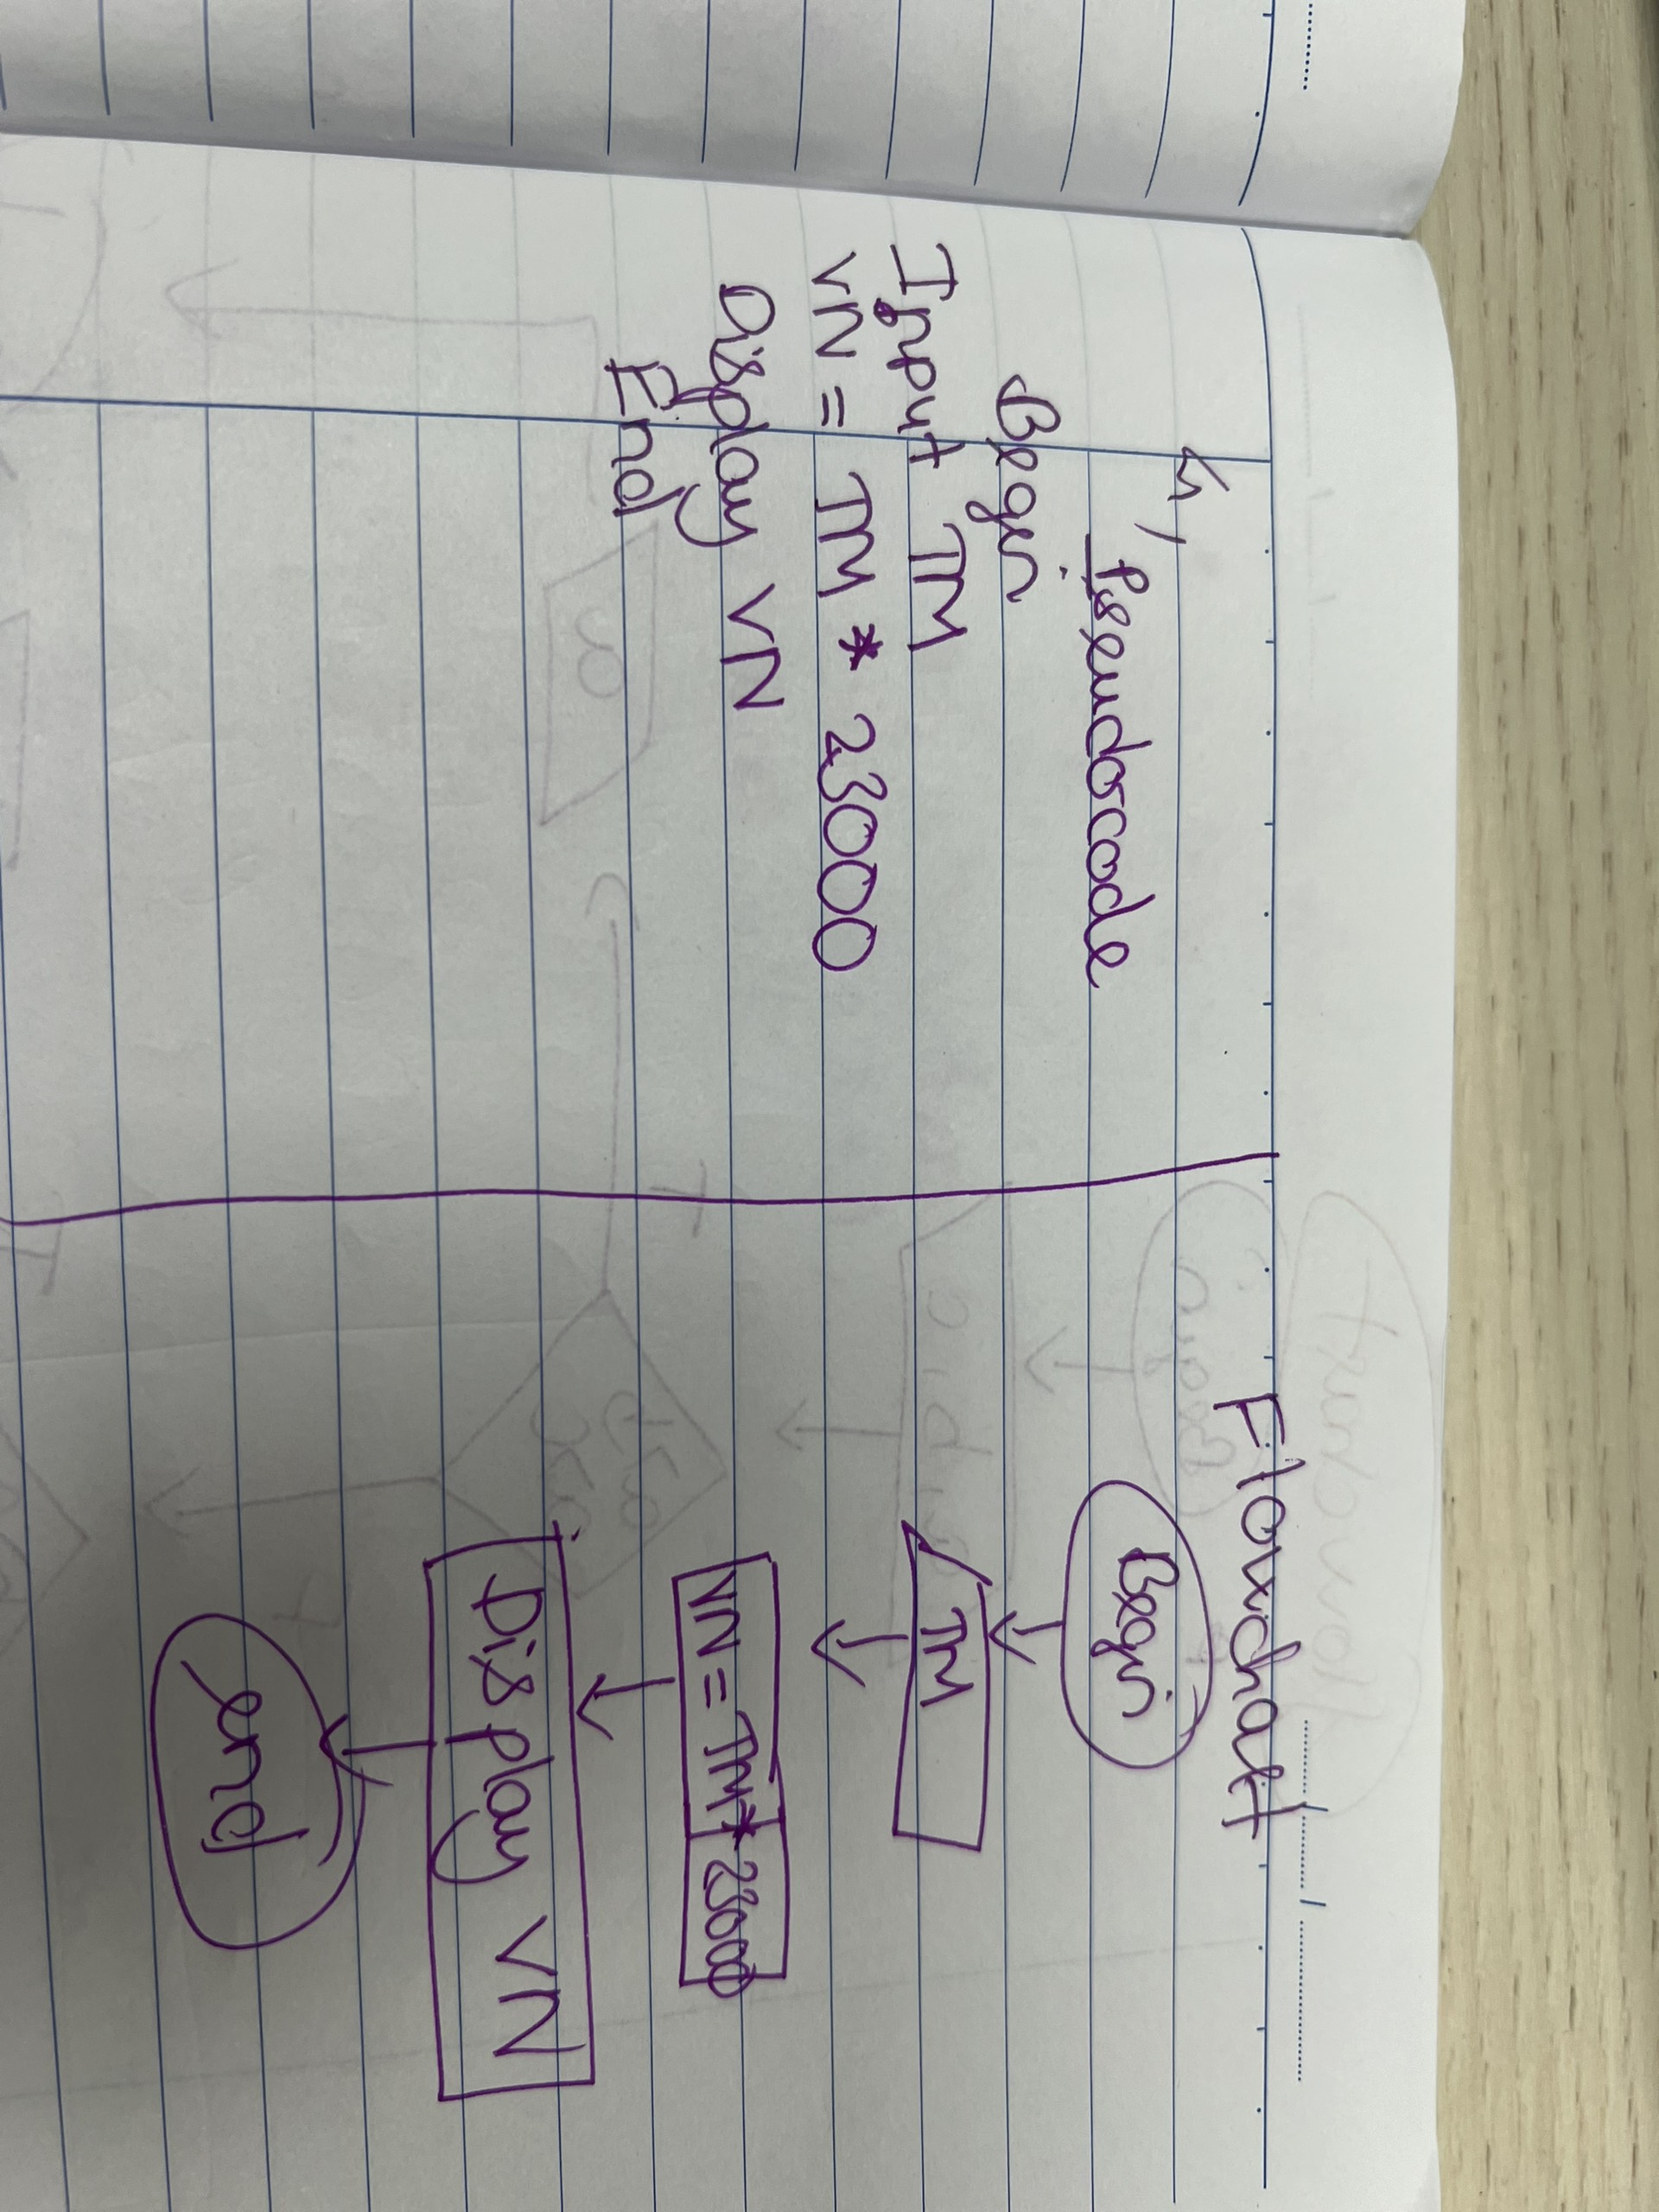 4,
Pseudorcode
Begin
Input TM
VN = TM * 23000
Display VN
End
Flowchart
Begin
TM
VN = TM * 23000
Display VN
end